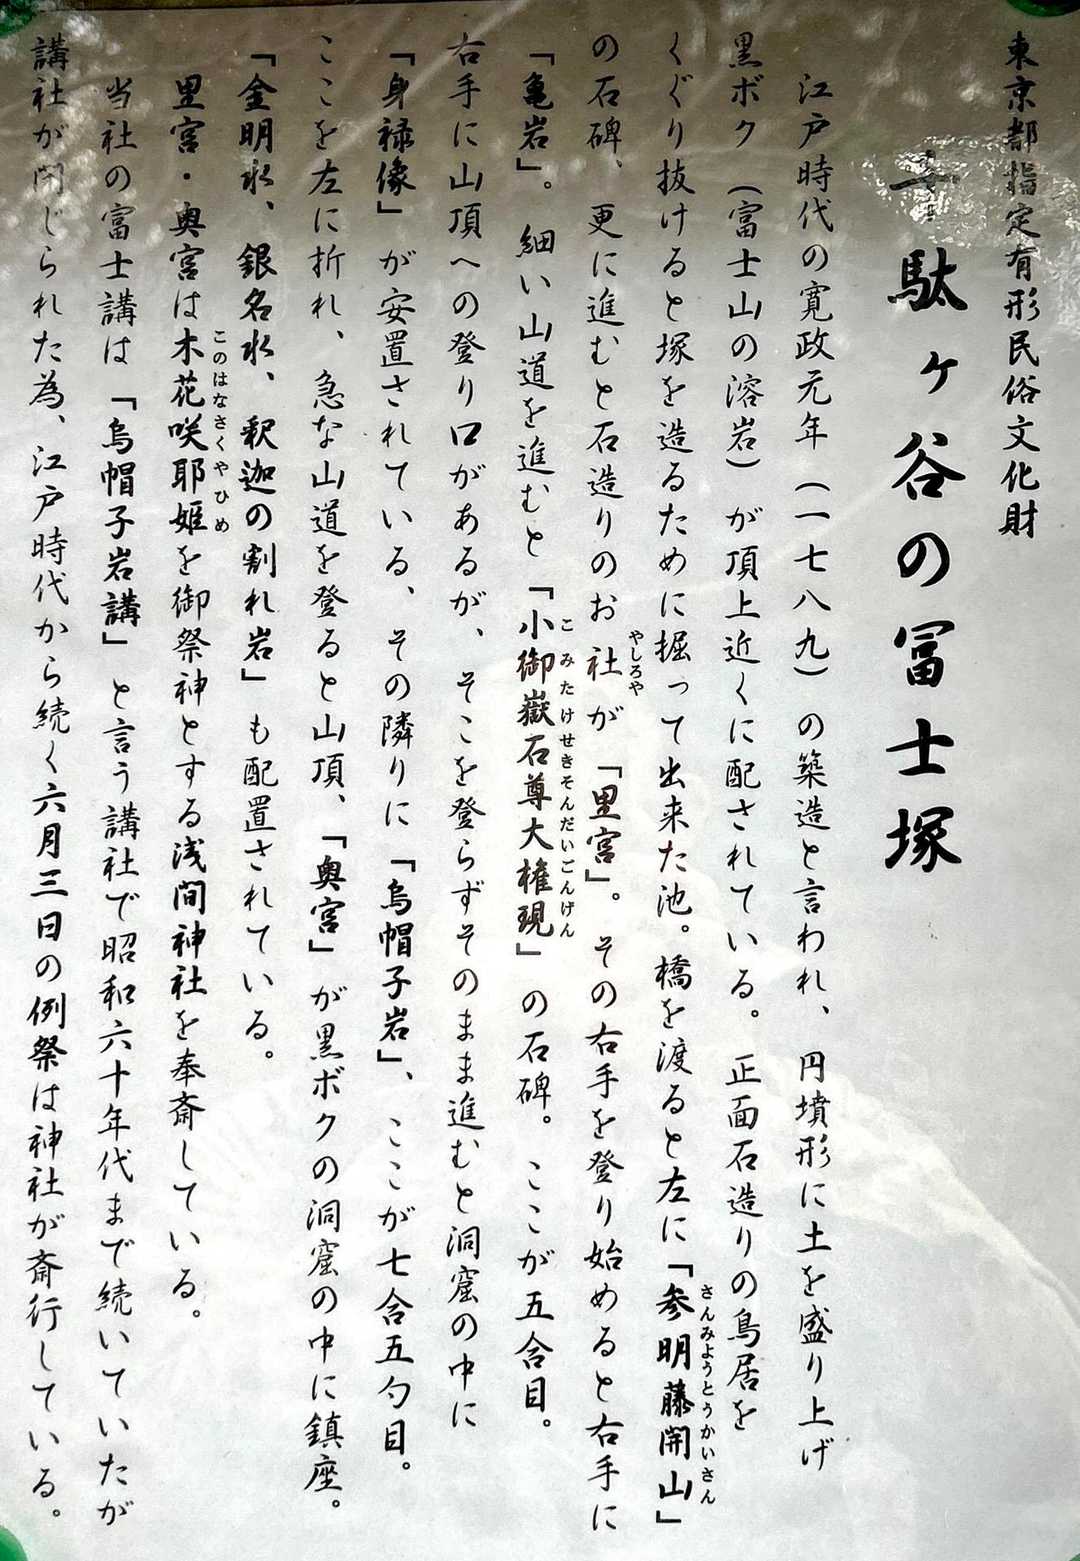 東京都指定有形民俗文化財
千駄ヶ谷の冨士塚
江戸時代の寛政元年（一七八九）の築造と言われ、円墳形に土を盛り上げ
黒ボク（富士山の溶岩）が頂上近くに配されている。正面石造りの鳥居を
くぐり抜けると塚を造るために掘って出来た池。橋を渡ると左に「参明藤開山」
さんみようとうかいさん
の石碑、更に進むと石造りのお社が「里宮」。その右手を登り始めると右手に
やしろや
「亀岩」。細い山道を進むと「小御嶽石尊大権現」の石碑。ここが五合目。
こみたけせきそんだいごんげん
右手に山頂への登り口があるが、そこを登らずそのまま進むと洞窟の中に
「身禄像」が安置されている、その隣りに「烏帽子岩」、ここが七合五勺目。
ここを左に折れ、急な山道を登ると山頂、「奥宮」が黒ボクの洞窟の中に鎮座。
「金明水、銀名水、釈迦の割れ岩」も配置されている。
里宮・奥宮は木花咲耶姫を御祭神とする浅間神社を奉斎している。
このはなさくやひめ
当社の富士講は「烏帽子岩講」と言う講社で昭和六十年代まで続いていたが
講社が閉じられた為、江戸時代から続く六月三日の例祭は神社が斎行している。